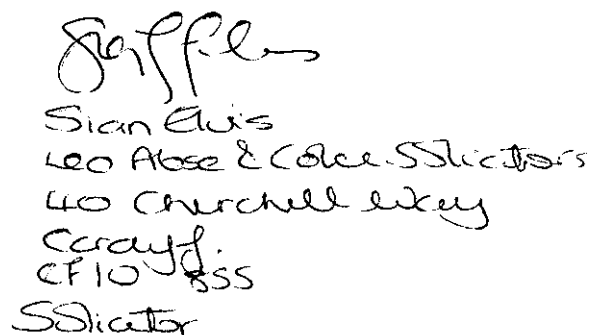 Sian Elvis
Leo Abse & Cohen Solicitors
40 Churchill Way
Cardiff.
CF10 2SS
Solicitor